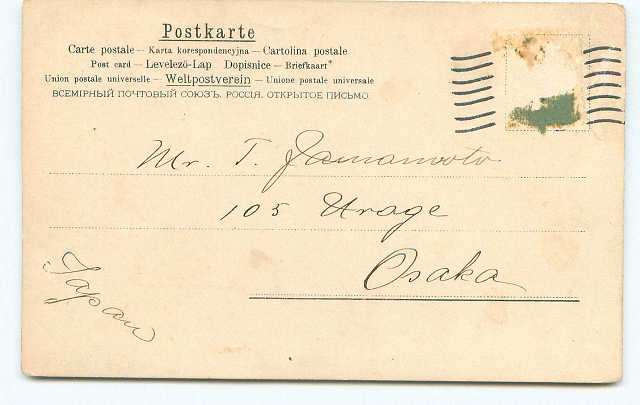 Postkarte
Carte postale – Karta korespondencyjna – Cartolina postale
Post card – Levelező-Lap Dopisnice – Briefkaart*
Union postale universelle – Weltpostverein – Unione postale universale
ВСЕМІРНЫЙ ПОЧТОВЫЙ СОЮЗЪ. РОССІЯ. ОТКРЫТОЕ ПИСЬМО.
Mr. T. Yamamoto
105 Urage
Osaka
Japan